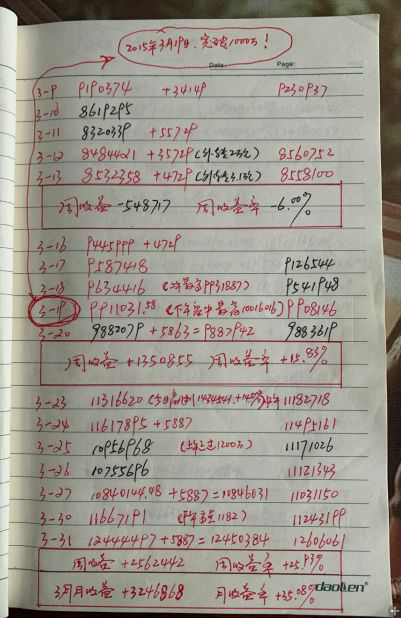 2015年3月19日,完破1000万!
Date: Page:
3-9 9190374 +34149 9230937
3-10 8619295
3-11 8320339 +55729
3-12 8484421 +35729 8560752
3-13 8532358 +4729 8558100
周收益 -548717 周收益率 -6.00%
3-16 9445999 +4729
3-17 9587418 9126544
3-18 9634416 9541948
3-19 9911031.58 (下午盘中最高1001606) 9908146
3-20 9882079 +5863=9887942 9883619
周收益 +1350855 周收益率 +15.83%
3-23 11316620 11182718
3-24 11617895 +5887 11495161
3-25 10956968 (上午过1200万) 11171026
3-26 10755696 11121343
3-27 10840144.48 +5887=10846031 11031150
3-30 11667191 11243199
3-31 12444497 +5887=12450384 12606061
周收益 +2562442 周收益率 +25.93%
3月月收益 +3246868 月收益率 +35.08%
daolien®